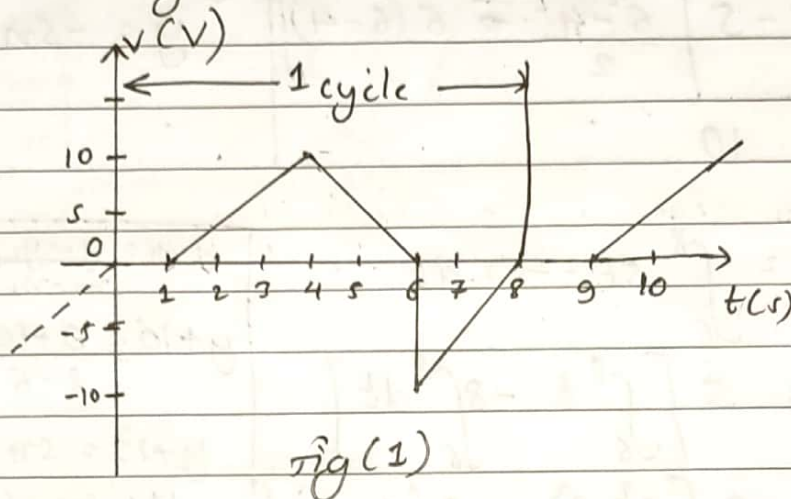 v(V)
1 cycle
10
5
0
1 2 3 4 5 6 7 8 9 10
t(s)
-5
-10
fig(1)